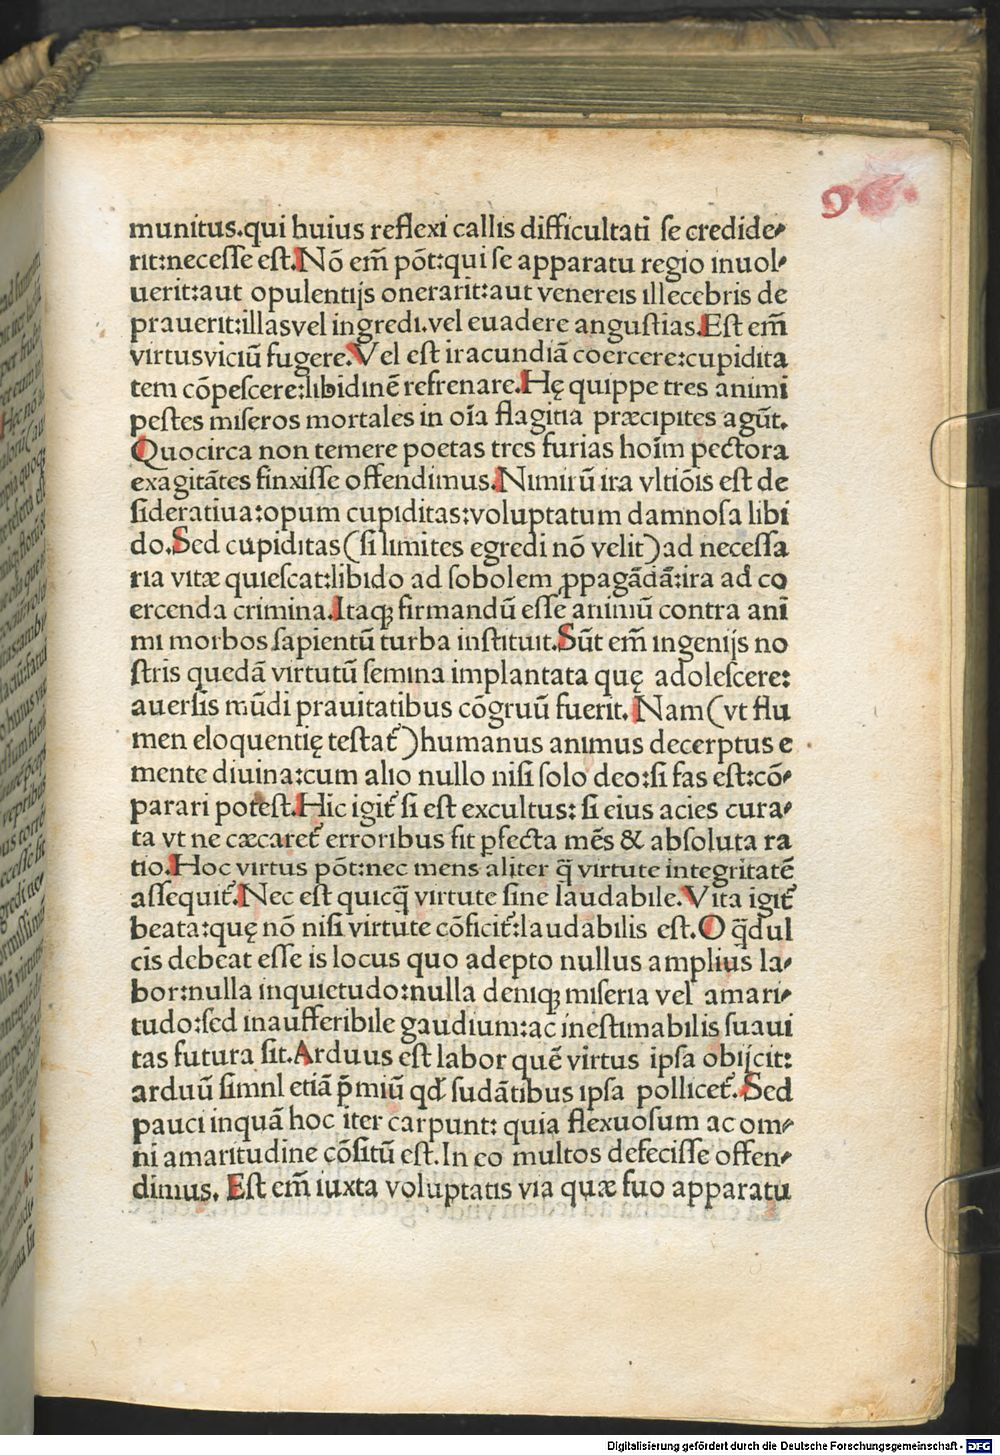 96.
munitus.qui huius reflexi callis difficultati se credide⸗
rit:necesse est.Nō em̄ pōt:qui se apparatu regio inuol⸗
uerit:aut opulentijs onerarit:aut venereis illecebris de
prauerit:illasvel ingredi.vel euadere angustias.Est em̄
virtusviciū fugere.Vel est iracundiā coercere:cupidita
tem cōpescere:libidinē refrenare.Hę quippe tres animi
pestes miseros mortales in oīa flagitia præcipites agūt.
Quocirca non temere poetas tres furias hoīm pectora
exagitātes finxisse offendimus.Nimirū ira vltiōis est de
sideratiua:opum cupiditas:voluptatum damnosa libi
do.Sed cupiditas(si limites egredi nō velit)ad necessa
ria vitæ quiescat:libido ad sobolem ꝓpagādā:ira ad co
ercenda crimina.Itaqꝫ firmandū esse animū contra ani
mi morbos sapientū turba instituit.Sūt em̄ ingenijs no
stris quedā virtutū semina implantata quę adolescere:
auersis mūdi prauitatibus cōgruū fuerit.Nam(vt flu
men eloquentię testat᷑)humanus animus decerptus e
mente diuina:cum alio nullo nisi solo deo:si fas est:cō⸗
parari potest.Hic igit᷑ si est excultus: si eius acies cura⸗
ta vt ne cæcaret᷑ erroribus fit ꝑfecta mēs & absoluta ra
tio.Hoc virtus pōt:nec mens aliter q̄ virtute integritatē
assequit᷑.Nec est quicq̄ virtute sine laudabile.Vita igit᷑
beata:quę nō nisi virtute cōficit᷑:laudabilis est.O q̄dul
cis debeat esse is locus quo adepto nullus amplius la⸗
bor:nulla inquietudo:nulla deniqꝫ miseria vel amari⸗
tudo:sed inaufferibile gaudium:ac inestimabilis suaui
tas futura sit.Arduus est labor quē virtus ipsa obijcit:
arduū simnl etiā p̄miū qd̛ sudātibus ipsa pollicet᷑.Sed
pauci inquā hoc iter carpunt: quia flexuosum ac om⸗
ni amaritudine cōsitū est.In eo multos defecisse offen⸗
dimus. Est em̄ iuxta voluptatis via quæ suo apparatu
Digitalisierung gefördert durch die Deutsche Forschungsgemeinschaft - DFG